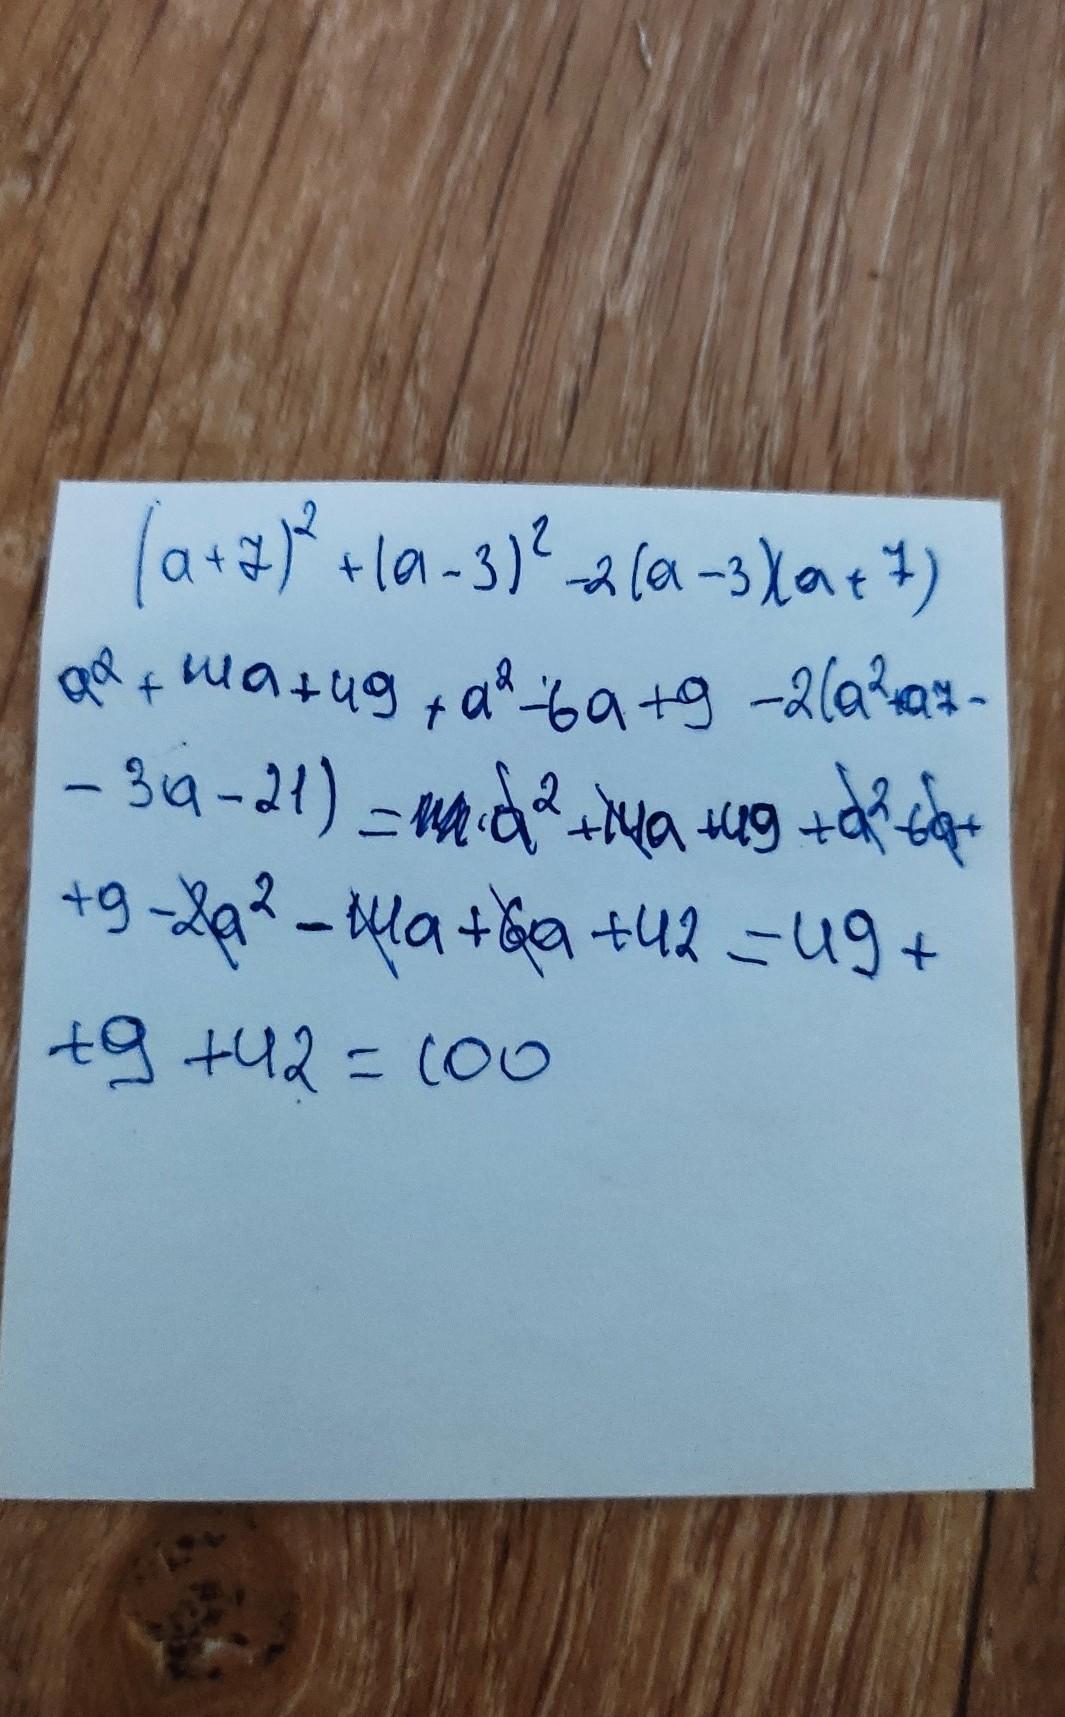 (a+7)² +(a-3)² -2(a-3)(a+7)
a² + 14a+49 + a² -6a+9 -2(a²+a7-
- 3a - 21) = a² +14a +49 +a² -6a+
+9 -2a² - 14a +6a +42 = 49 +
+9 +42 = 100